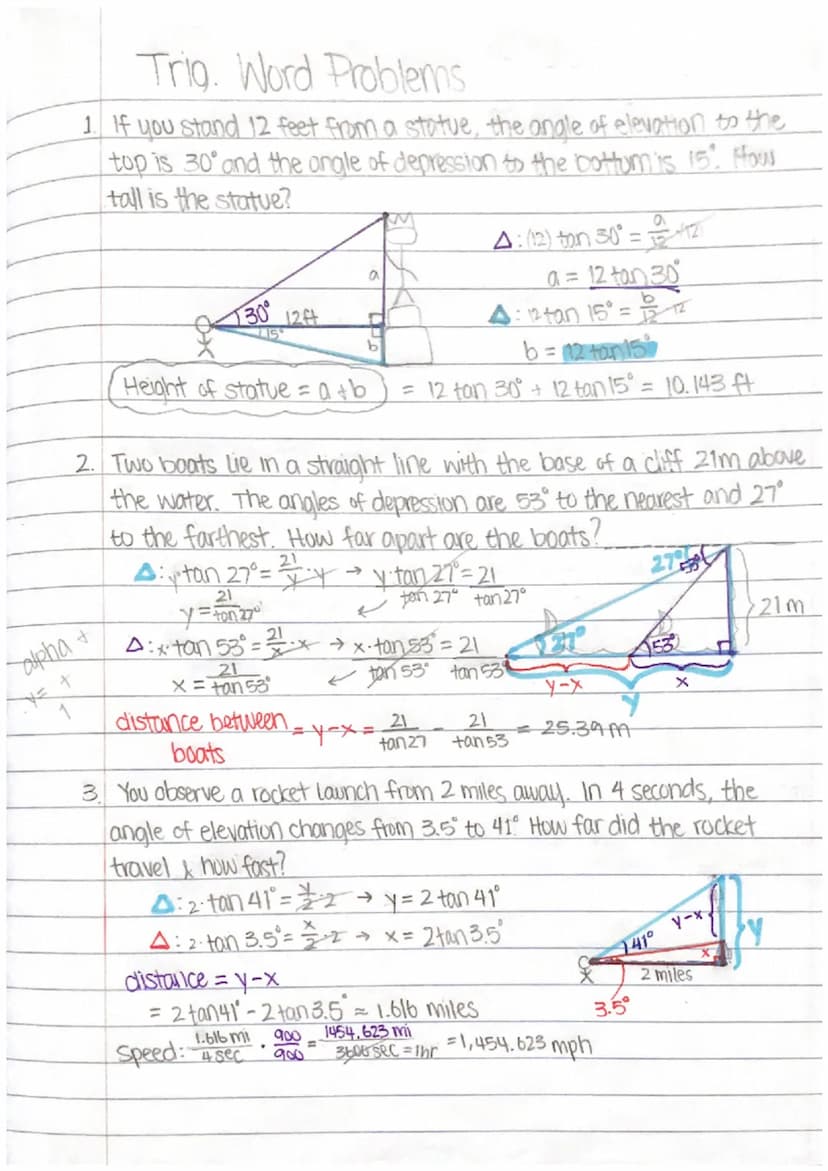 Trig. Word Problems
1. If you stand 12 feet from a statue, the angle of elevation to the
top is 30° and the angle of depression to the bottom is 15°. How
tall is the statue?
30° 12ft
15°
a
b
Δ: (12) tan 30° = a/12 · 12
a = 12 tan 30°
Δ: 12 tan 15° = b/12 · 12
b = 12 tan 15°
Height of statue = a + b = 12 tan 30° + 12 tan 15° = 10.143 ft
2. Two boats lie in a straight line with the base of a cliff 21m above
the water. The angles of depression are 53° to the nearest and 27°
to the farthest. How far apart are the boats?
Δ: y · tan 27° = 21/y · y → y · tan 27°/tan 27° = 21/tan 27°
y = 21/tan 27°
Δ: x · tan 53° = 21/x · x → x · tan 53°/tan 53° = 21/tan 53°
x = 21/tan 53°
27° 53°
21m
27° 53°
y-x x
y
alpha +
y = +
1
distance between boats = y-x = 21/tan27 - 21/tan53 = 25.39 m
3. You observe a rocket launch from 2 miles away. In 4 seconds, the
angle of elevation changes from 3.5° to 41°. How far did the rocket
travel & how fast?
Δ: 2 · tan 41° = y/2 · 2 → y = 2 tan 41°
Δ: 2 · tan 3.5° = x/2 · 2 → x = 2 tan 3.5°
distance = y-x
= 2 tan 41° - 2 tan 3.5° ≈ 1.616 miles
41° y-x y
x
2 miles
3.5°
Speed: 1.616 mi/4 sec · 900/900 = 1454.623 mi/3600 sec = 1hr = 1,454.623 mph